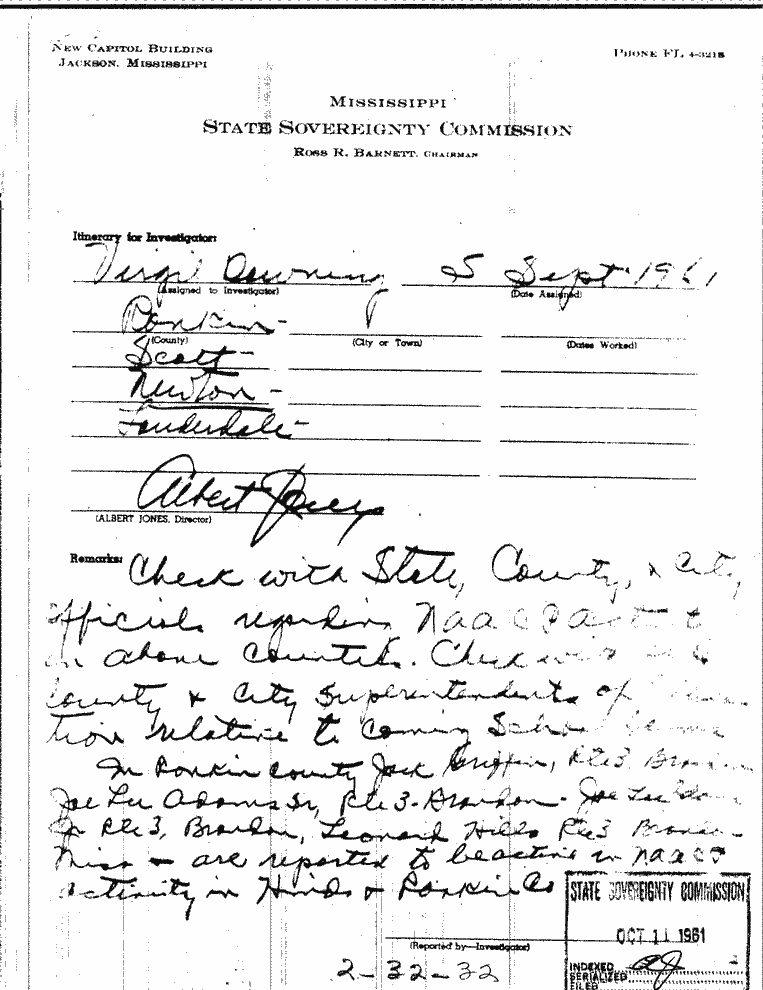 NEW CAPITOL BUILDING
JACKSON, MISSISSIPPI
PHONE FL 4-3218
MISSISSIPPI
STATE SOVEREIGNTY COMMISSION
ROSS R. BARNETT, CHAIRMAN
Itinerary for Investigator:
Virgil Downing 5 Sept. 1961
(Assigned to Investigator) (Date Assigned)
Rankin-
(County) (City or Town) (Dates Worked)
Scott-
Newton-
Lauderdale-
Albert Jones
(ALBERT JONES, Director)
Remarks: Check with State, County, & City
officials regarding NAACP
in above counties. Check
County & City Superintendents of
tion relative to coming School
In Rankin County Jack Griffin, Rte 3 Brandon
Joe Lee Adams Sr, Rte 3-Brandon- Joe Lee
Jr Rte 3, Brandon, Leonard Hills Rte 3 Brandon
Miss - are reported to be active in NAACP
activity in Hinds & Rankin Co
STATE SOVEREIGNTY COMMISSION
OCT 11 1961
(Reported by—Investigator)
INDEXED AJ
SERIALIZED
FILED
2-32-32